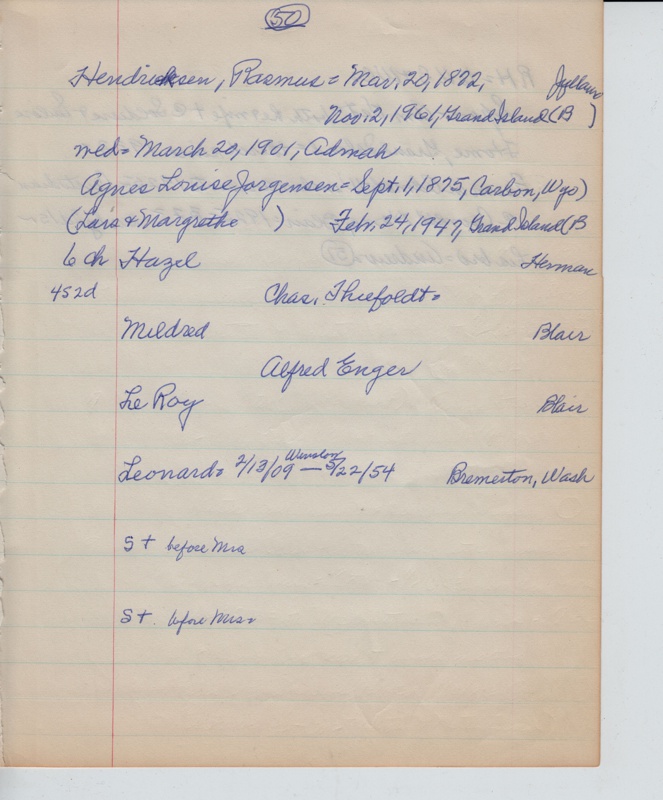 50
Hendricksen, Rasmus = Mar. 20, 1872, Jylland
Nov. 2, 1961, Grand Island (B )
wed = March 20, 1901, Admah
Agnes Louise Jorgensen = Sept. 1, 1875, (Carbon, Wyo)
(Lars & Margrethe ) Feb. 24, 1947, Grand Island (B
6 ch Hazel Herman
4s 2d Chas. Thiefoldt =
Mildred Blair
Alfred Enger
Le Roy Blair
Winslow
Leonard = 2/13/09 — 5/22/54 Bremerton, Wash
S + before Mrs
S +. before Mrs =